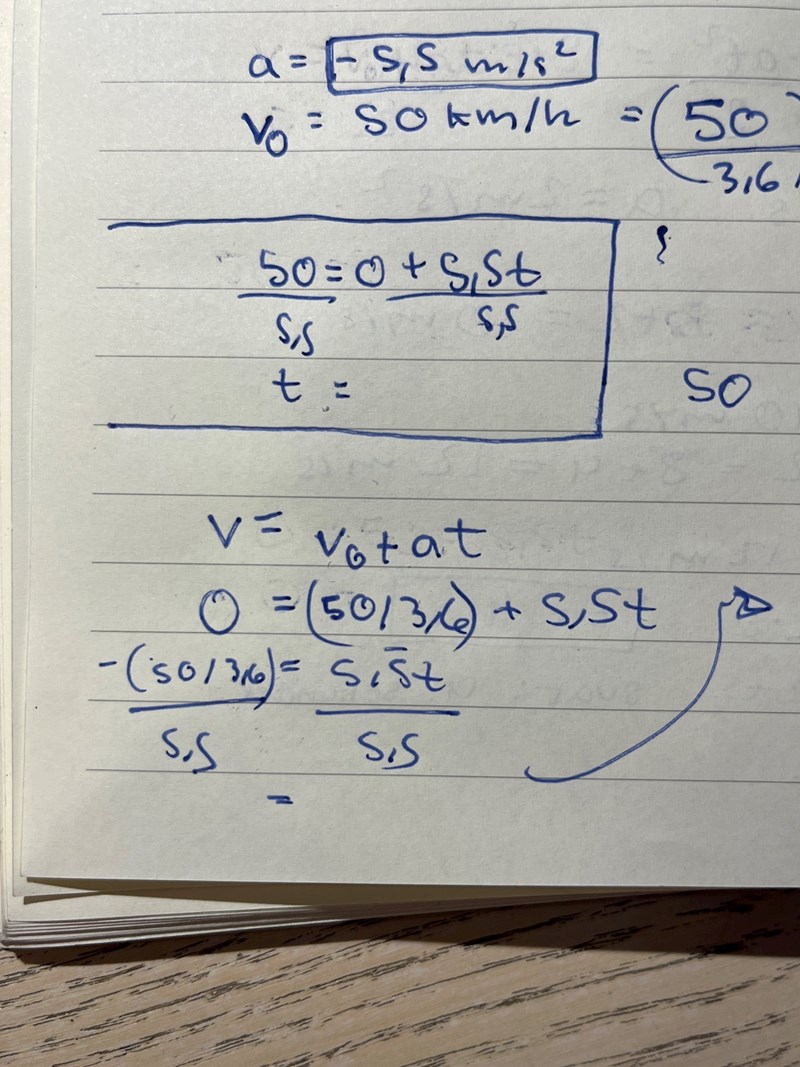 a = - 5,5 m/s²
v₀ = 50 km/h = (50
3,6
50 = 0 + 5,5t
5,5 5,5
t =
50
v = v₀ + at
0 = (50/3,6) + 5,5t
-(50/3,6) = 5,5t
5,5 5,5
=